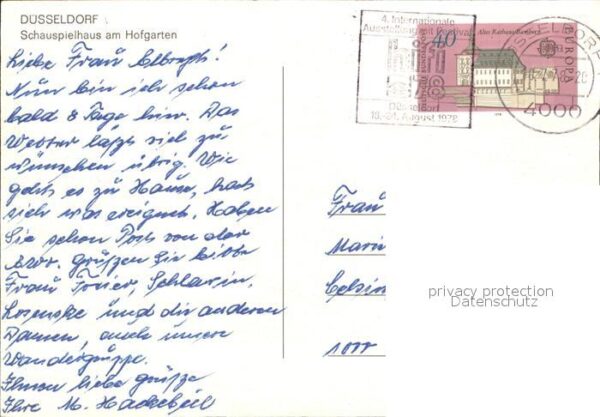 DÜSSELDORF
Schauspielhaus am Hofgarten
Liebe Frau
Nun bin ich schon
bald 8 Tage hier. Das
Wetter läßt viel zu
wünschen übrig. Wie
geht es zu Hause, hat
sich was ereignet. Haben
Sie schon Post von der
grüßen Sie bitte
Frau
und die anderen
Damen, auch unsere
Wandergruppe.
Ihnen liebe Grüße
Ihre M.
4. Internationale
Ausstellung mit Festival
Düsseldorf
18.-24. August 1978
40
Altes Rathaus Bamberg
EUROPA
DEUTSCHE BUNDESPOST
DÜSSELDORF
4000
Frau
Marie
privacy protection
Datenschutz